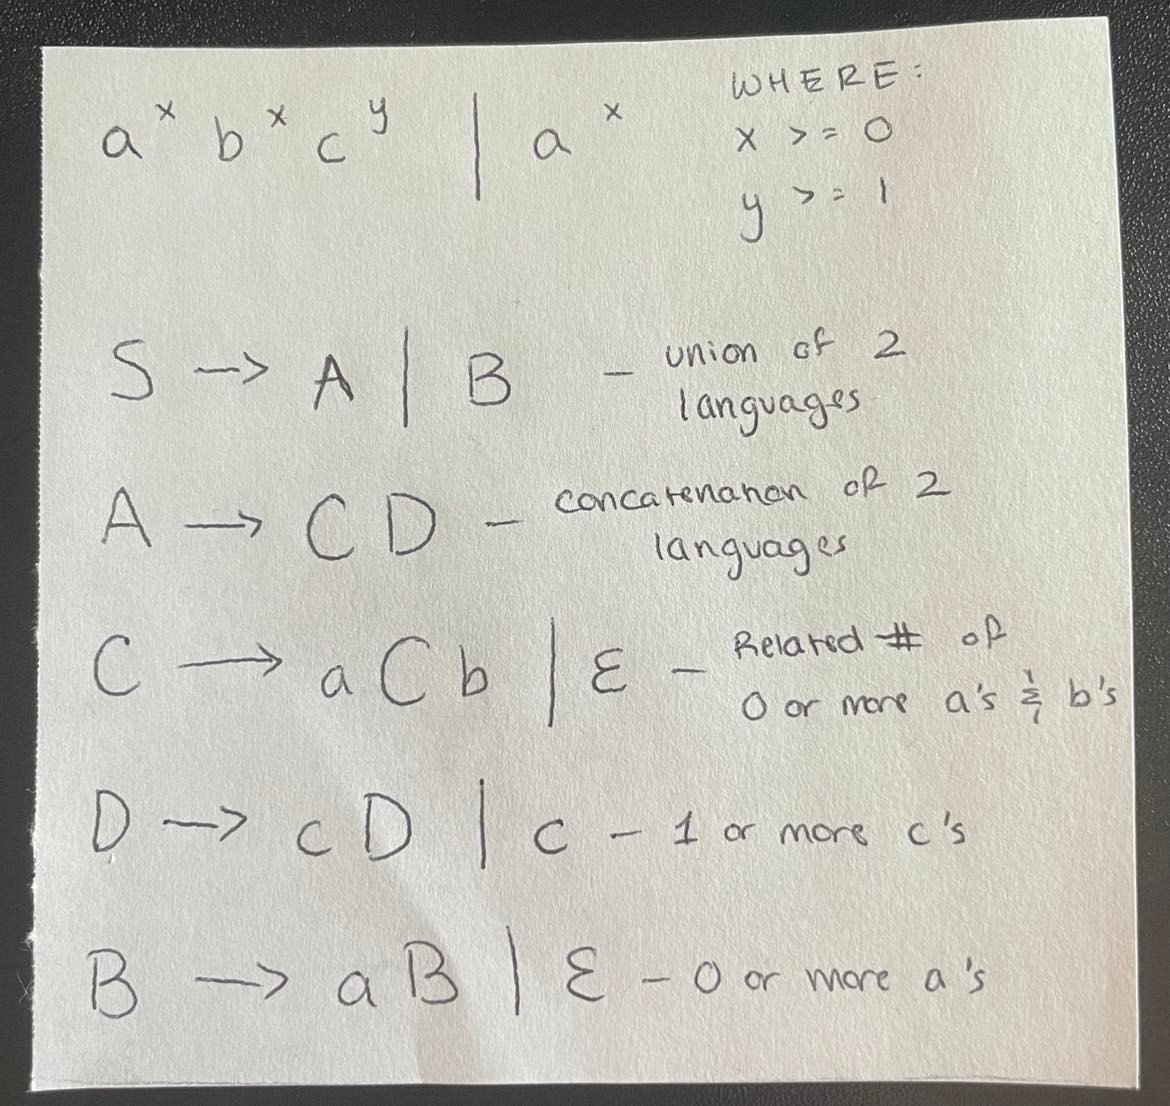 aˣ bˣ cʸ | aˣ
WHERE:
x >= 0
y >= 1
S → A | B - union of 2
languages
A → C D - concatenation of 2
languages
C → a C b | ε - Related # of
0 or more a's & b's
D → c D | c - 1 or more c's
B → a B | ε - 0 or more a's